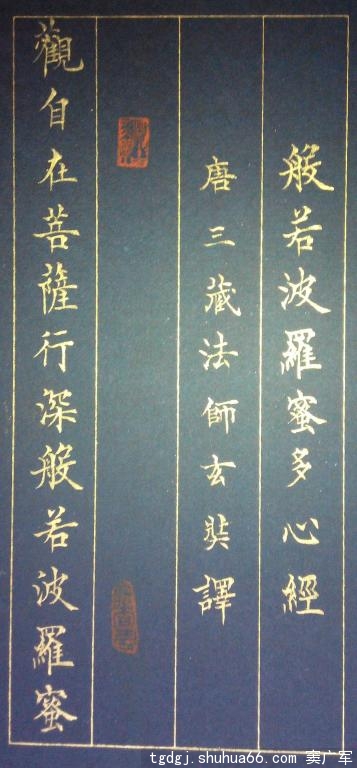 般若波羅蜜多心經
唐三藏法師玄奘譯
觀自在菩薩行深般若波羅蜜
tgdgj.shuhua66.com 卖广军